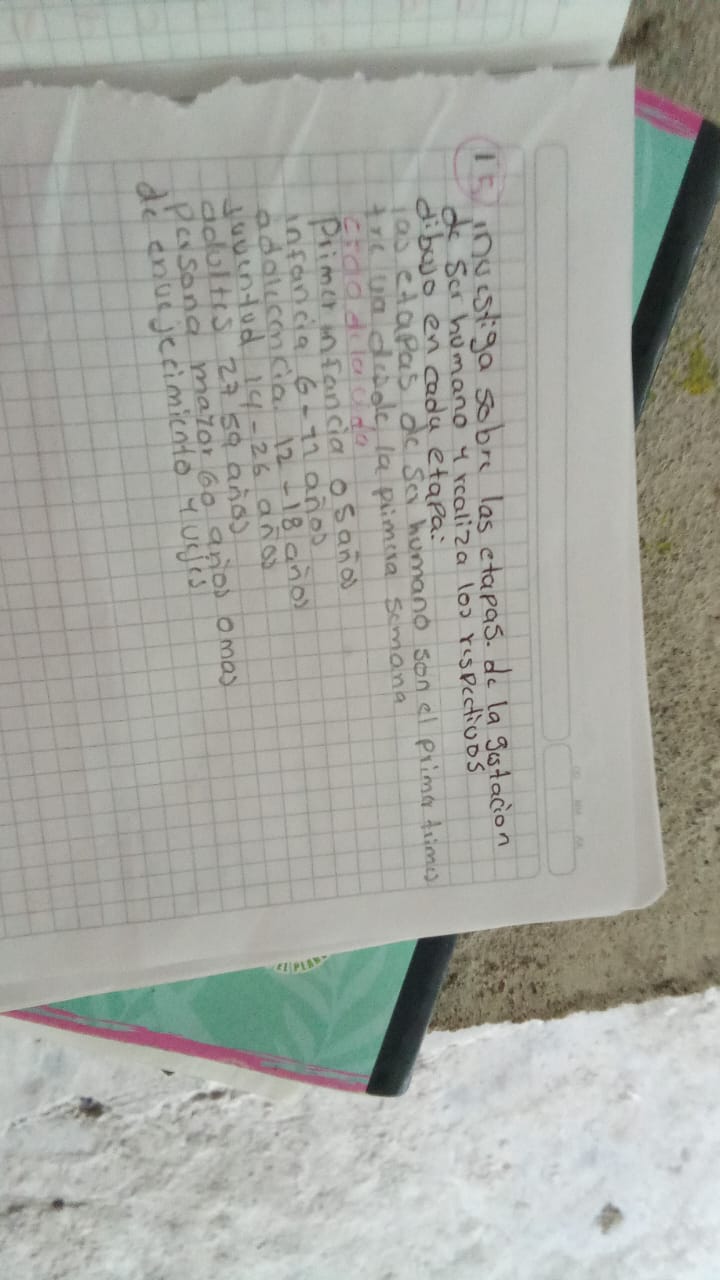 15 investiga sobre las etapas. de la gestacion
de ser humano y realiza los respectivos
dibujo en cada etapa:
las etapas de ser humano son el primer trimes
tre va desde la primera semana
ciclo de la vida
Primer infancia 0 5 años
infancia 6 - 11 años
adolecencia 12 - 18 años
juventud 14 - 26 años
adultes 27 59 años
Persona mayor 60 años o mas
de envejecimiento y vejes
EL PLAN